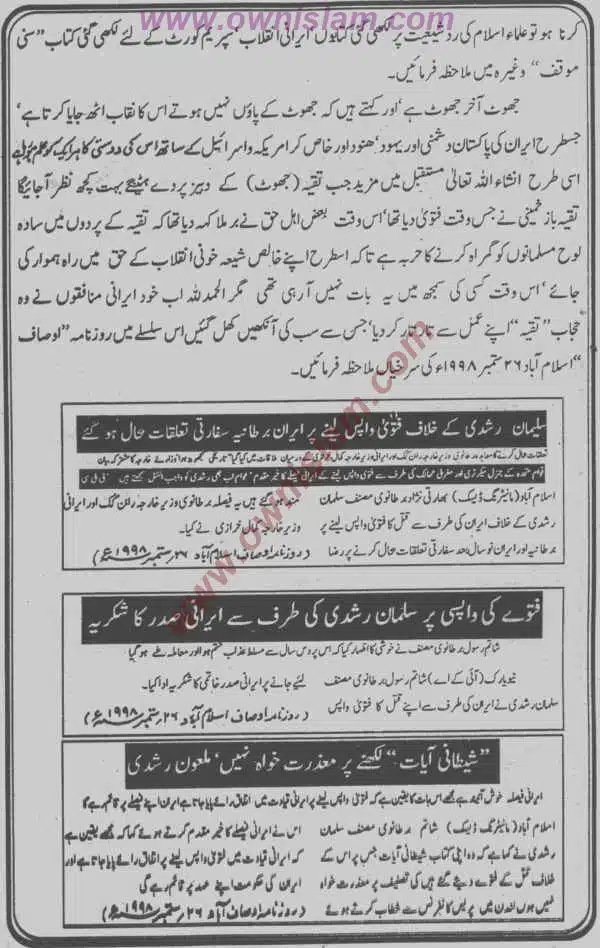 www.ownislam.com
کرنا ہو تو علماء اسلام کی رد شیعیت پر لکھی گئی کتابوں ’ایرانی انقلاب‘ سپریم کورٹ کے لئے لکھی گئی کتاب ’’سنی
موقف‘‘ وغیرہ میں ملاحظہ فرمائیں۔
جھوٹ آخر جھوٹ ہے‘ اور کہتے ہیں کہ جھوٹ کے پاؤں نہیں ہوتے اس کا نقاب اٹھ جایا کرتا ہے‘
جسطرح ایران کی پاکستان دشمنی اور یہود‘ ھنود اور خاص کر امریکہ واسرائیل کے ساتھ اس کی دوستی کا ہر ایک کو علم ہو چلا ہے
اسی طرح انشاء اللہ تعالیٰ مستقبل میں مزید جب تقیہ (جھوٹ) کے دبیز پردے ہٹینگے بہت کچھ نظر آجائیگا
تقیہ باز خمینی نے جس وقت فتویٰ دیا تھا‘ اس وقت بعض اہل حق نے برملا کہہ دیا تھا کہ تقیہ کے پردوں میں سادہ
لوح مسلمانوں کو گمراہ کرنے کا حربہ ہے تاکہ اسطرح اپنے خالص شیعہ خونی انقلاب کے حق میں راہ ہموار کی
جائے‘ اس وقت کسی کی سمجھ میں یہ بات نہیں آرہی تھی مگر الحمدللہ اب خود ایرانی منافقوں نے وہ
حجاب ’’تقیہ‘‘ اپنے عمل سے تار تار کر دیا‘ جس سے سب کی آنکھیں کھل گئیں اس سلسلے میں روزنامہ ’’اوصاف
‘‘اسلام آباد ۲۶ ستمبر ۱۹۹۸ء کی سرخیاں ملاحظہ فرمائیں۔
سلیمان رشدی کے خلاف فتویٰ واپس لینے پر ایران برطانیہ سفارتی تعلقات بحال ہو گئے
اسلام آباد (مانیٹرنگ ڈیسک) بھارتی نژاد برطانوی مصنف سلمان
رشدی کے خلاف ایران کی طرف سے قتل کا فتویٰ واپس لینے پر
برطانیہ اور ایران نو سال بعد سفارتی تعلقات بحال کرنے پر رضا
مند ہو گئے ہیں یہ فیصلہ برطانوی وزیر خارجہ رابن کک اور ایرانی
وزیر خارجہ کمال خرازی نے کیا۔
(روزنامہ اوصاف اسلام آباد ۲۶ ستمبر ۱۹۹۸ء)
فتوے کی واپسی پر سلمان رشدی کی طرف سے ایرانی صدر کا شکریہ
شاتم رسول برطانوی مصنف نے خوشی کا اظہار کیا کہ اس پر دس سال سے مسلط عذاب ختم ہوا اور معاملہ طے ہو گیا
نیویارک (آئی کے اے) شاتم رسول برطانوی مصنف
سلمان رشدی نے ایران کی طرف سے اپنے قتل کا فتویٰ واپس
لیئے جانے پر ایرانی صدر خاتمی کا شکریہ ادا کیا۔
(روزنامہ اوصاف اسلام آباد ۲۶ ستمبر ۱۹۹۸ء)
’’شیطانی آیات‘‘ لکھنے پر معذرت خواہ نہیں‘ ملعون رشدی
ایرانی فیصلہ خوش آئند ہے مجھے اس بات کا یقین ہے کہ فتویٰ واپس لینے پر ایرانی قیادت میں اتفاق رائے پایا جاتا ہے ایران اپنے فیصلے پر قائم رہے گا
اسلام آباد (مانیٹرنگ ڈیسک) شاتم برطانوی مصنف سلمان
رشدی نے کہا ہے کہ وہ اپنی کتاب شیطانی آیات جس پر اس کے
خلاف قتل کے فتوے دیئے گئے ہیں کی تصنیف پر معذرت خواہ
نہیں ہوں لندن میں پریس کانفرنس سے خطاب کرتے ہوئے
اس نے ایرانی فیصلے کا خیر مقدم کرتے ہوئے کہا کہ مجھے یقین ہے
کہ ایرانی قیادت میں فتویٰ واپس لینے پر اتفاق رائے پایا جاتا ہے اور
ایران کی حکومت اپنے عہد پر قائم رہے گی
(روزنامہ اوصاف اسلام آباد ۲۶ ستمبر ۱۹۹۸ء)
www.ownislam.com